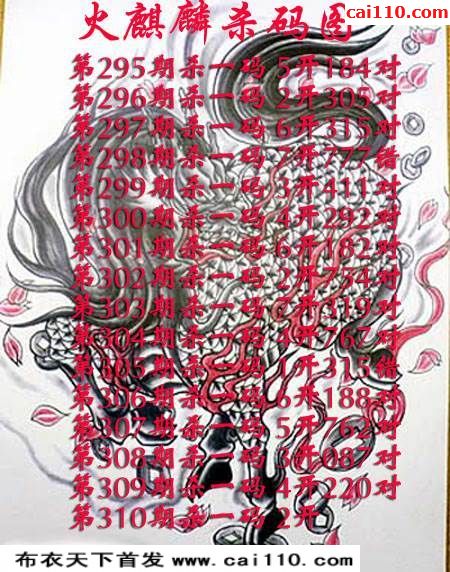 cai110.com
火麒麟杀码图
第295期杀一码5开184对
第296期杀一码2开305对
第297期杀一码6开315对
第298期杀一码7开777错
第299期杀一码3开411对
第300期杀一码4开292对
第301期杀一码6开182对
第302期杀一码2开754对
第303期杀一码7开319对
第304期杀一码4开767对
第305期杀一码1开315错
第306期杀一码6开188对
第307期杀一码5开762对
第308期杀一码3开087对
第309期杀一码4开220对
第310期杀一码2开
布衣天下首发 www.cai110.com